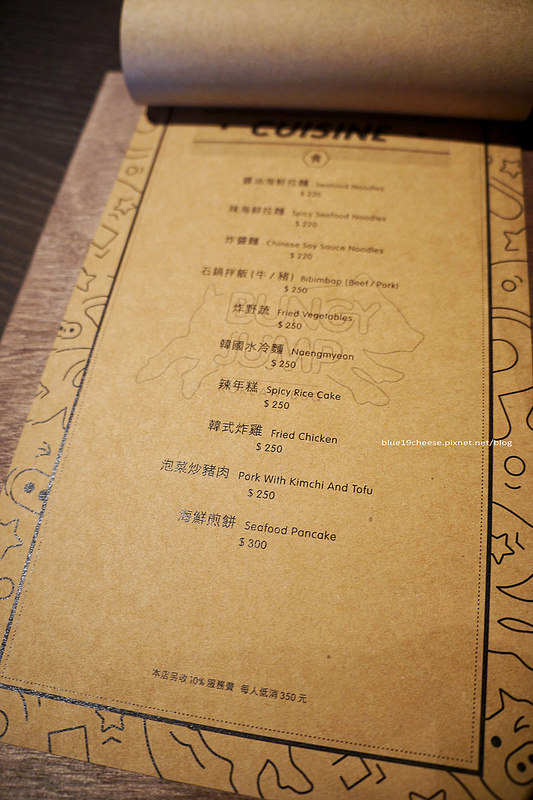 CUISINE
食
醬油海鮮拉麵 Seafood Noodles
$ 220
辣海鮮拉麵 Spicy Seafood Noodles
$ 220
炸醬麵 Chinese Soy Sauce Noodles
$ 220
石鍋拌飯 (牛 / 豬) Bibimbap (Beef / Pork)
$ 250
炸野蔬 Fried Vegetables
$ 250
BUNGY
JUMP
韓國水冷麵 Naengmyeon
$ 250
辣年糕 Spicy Rice Cake
$ 250
韓式炸雞 Fried Chicken
$ 250
blue19cheese.pixnet.net/blog
泡菜炒豬肉 Pork With Kimchi And Tofu
$ 250
海鮮煎餅 Seafood Pancake
$ 300
本店另收 10% 服務費 每人低消 350 元